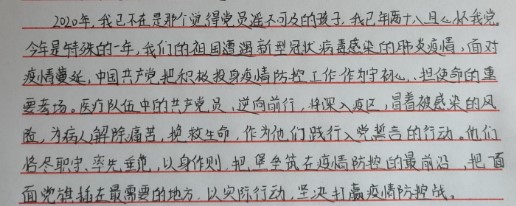 2020年,我已不在是那个觉得党员遥不可及的孩子,我已年满十八且心怀我党。
今年是特殊的一年,我们的祖国遭遇新型冠状病毒感染的肺炎疫情,面对
疫情蔓延,中国共产党把积极投身疫情防控工作作为守初心、担使命的重
要考场。医疗队伍中的共产党员、逆向前行,将深入疫区,冒着被感染的风
险,为病人解除痛苦,挽救生命,作为他们践行入党誓言的行动。他们
恪尽职守、率先垂范,以身作则,把堡垒筑在疫情防控的最前沿,把一面
面党旗插在最需要的地方,以实际行动,坚决打赢疫情防控战。